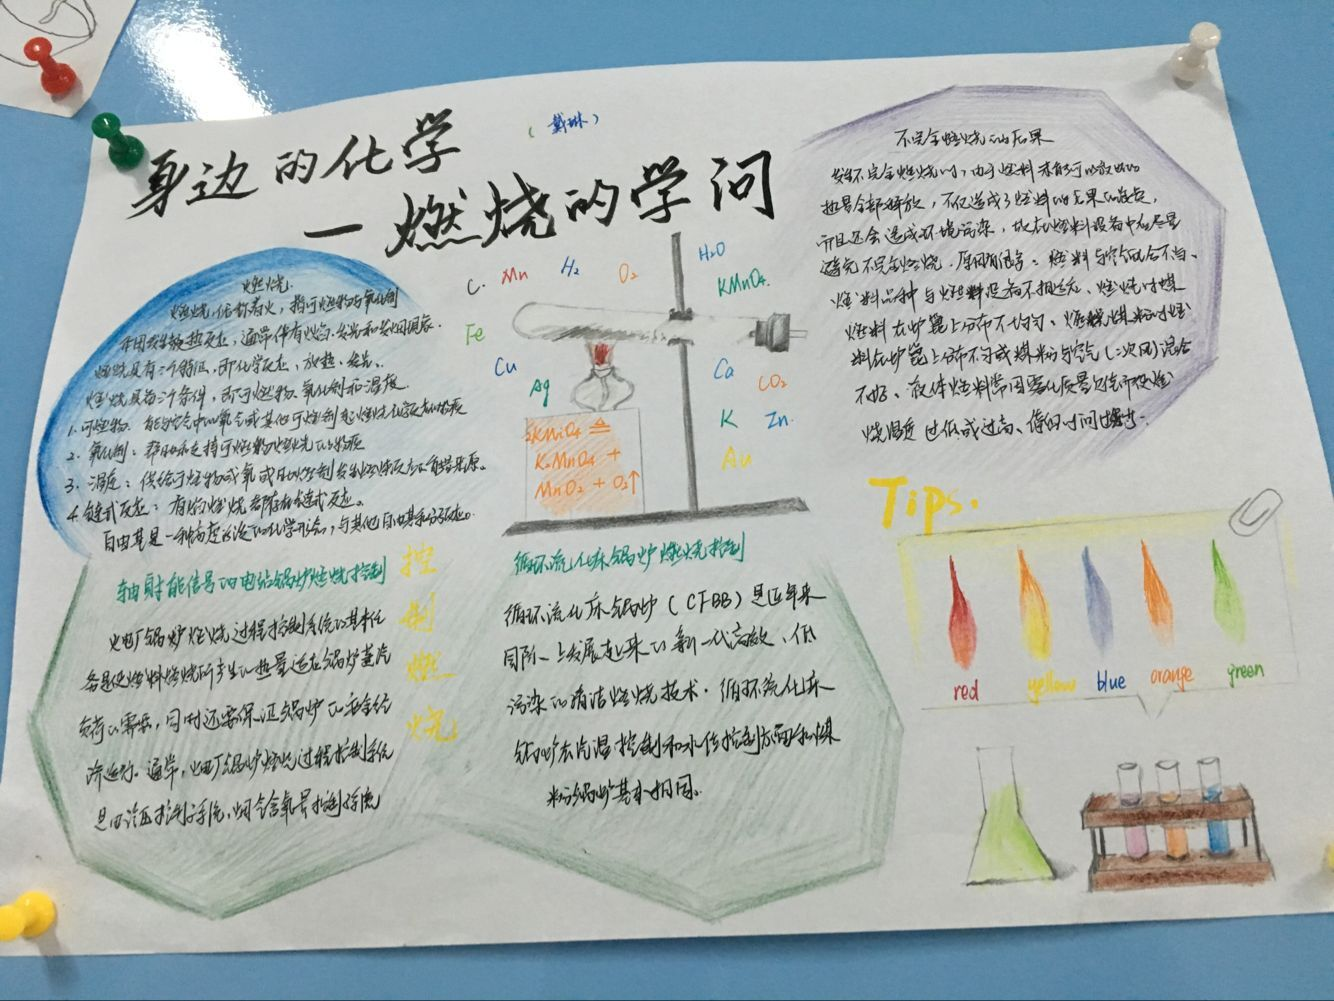 身边的化学
(戴琳)
一燃烧的学问
燃烧
燃烧,俗称着火,指可燃物与氧化剂
作用发生放热反应,通常伴有火焰、发光和发烟现象.
燃烧具有三个特征,即化学反应、放热、发光。
燃烧具备三个条件,即可燃物、氧化剂和温度
1.可燃物:能与空气中的氧气或其他可燃剂起燃烧化学反应的物质
2.氧化剂:帮助和支持可燃物燃烧的物质
3.温度:供给可燃物或氧或助燃剂发生燃烧反应的能量来源。
4.链式反应:有焰燃烧都存在链式反应。
自由基是一种高度活泼的化学形态,与其他自由基和分子反应。
C.
Mn
H₂
O₂
H₂O
KMnO₄
Fe
Cu
Ag
Ca
CO₂
K
Zn
Au
2KMnO₄ ≙
K₂MnO₄ +
MnO₂ + O₂↑
不完全燃烧的后果
发生不完全燃烧时,由于燃料未能将可以放出的
热量全部释放,不仅造成了燃料的
而且还会造成环境污染,故在燃料设备中应尽量
避免不完全燃烧.原因有很多:燃料与空气混合不良、
燃料品种与燃料设备不相适应、燃烧时煤
燃料在炉篦上分布不均匀、燃烧煤粉时燃
料在炉篦上分布不匀或煤粉与空气(二次风)混合
不好、液体燃料常因雾化质量
烧温度过低或过高、停留时间
辐射能信号的电站锅炉燃烧控制
控制燃烧
火电厂锅炉燃烧过程控制系统的基本任
务是使燃料燃烧所产生的热量适应锅炉蒸汽
负荷的需要,同时还需保证锅炉的安全经
济运行.通常,火电厂锅炉燃烧过程控制系统
是由汽压控制子系统,烟气含氧量控制子系统
循环流化床锅炉燃烧控制
循环流化床锅炉(CFBB)是近年来
国际上发展起来的新一代高效、低
污染的清洁燃烧技术.循环流化床
锅炉在汽温控制和水位控制方面和煤
粉锅炉基本相同.
Tips.
red
yellow
blue
orange
green